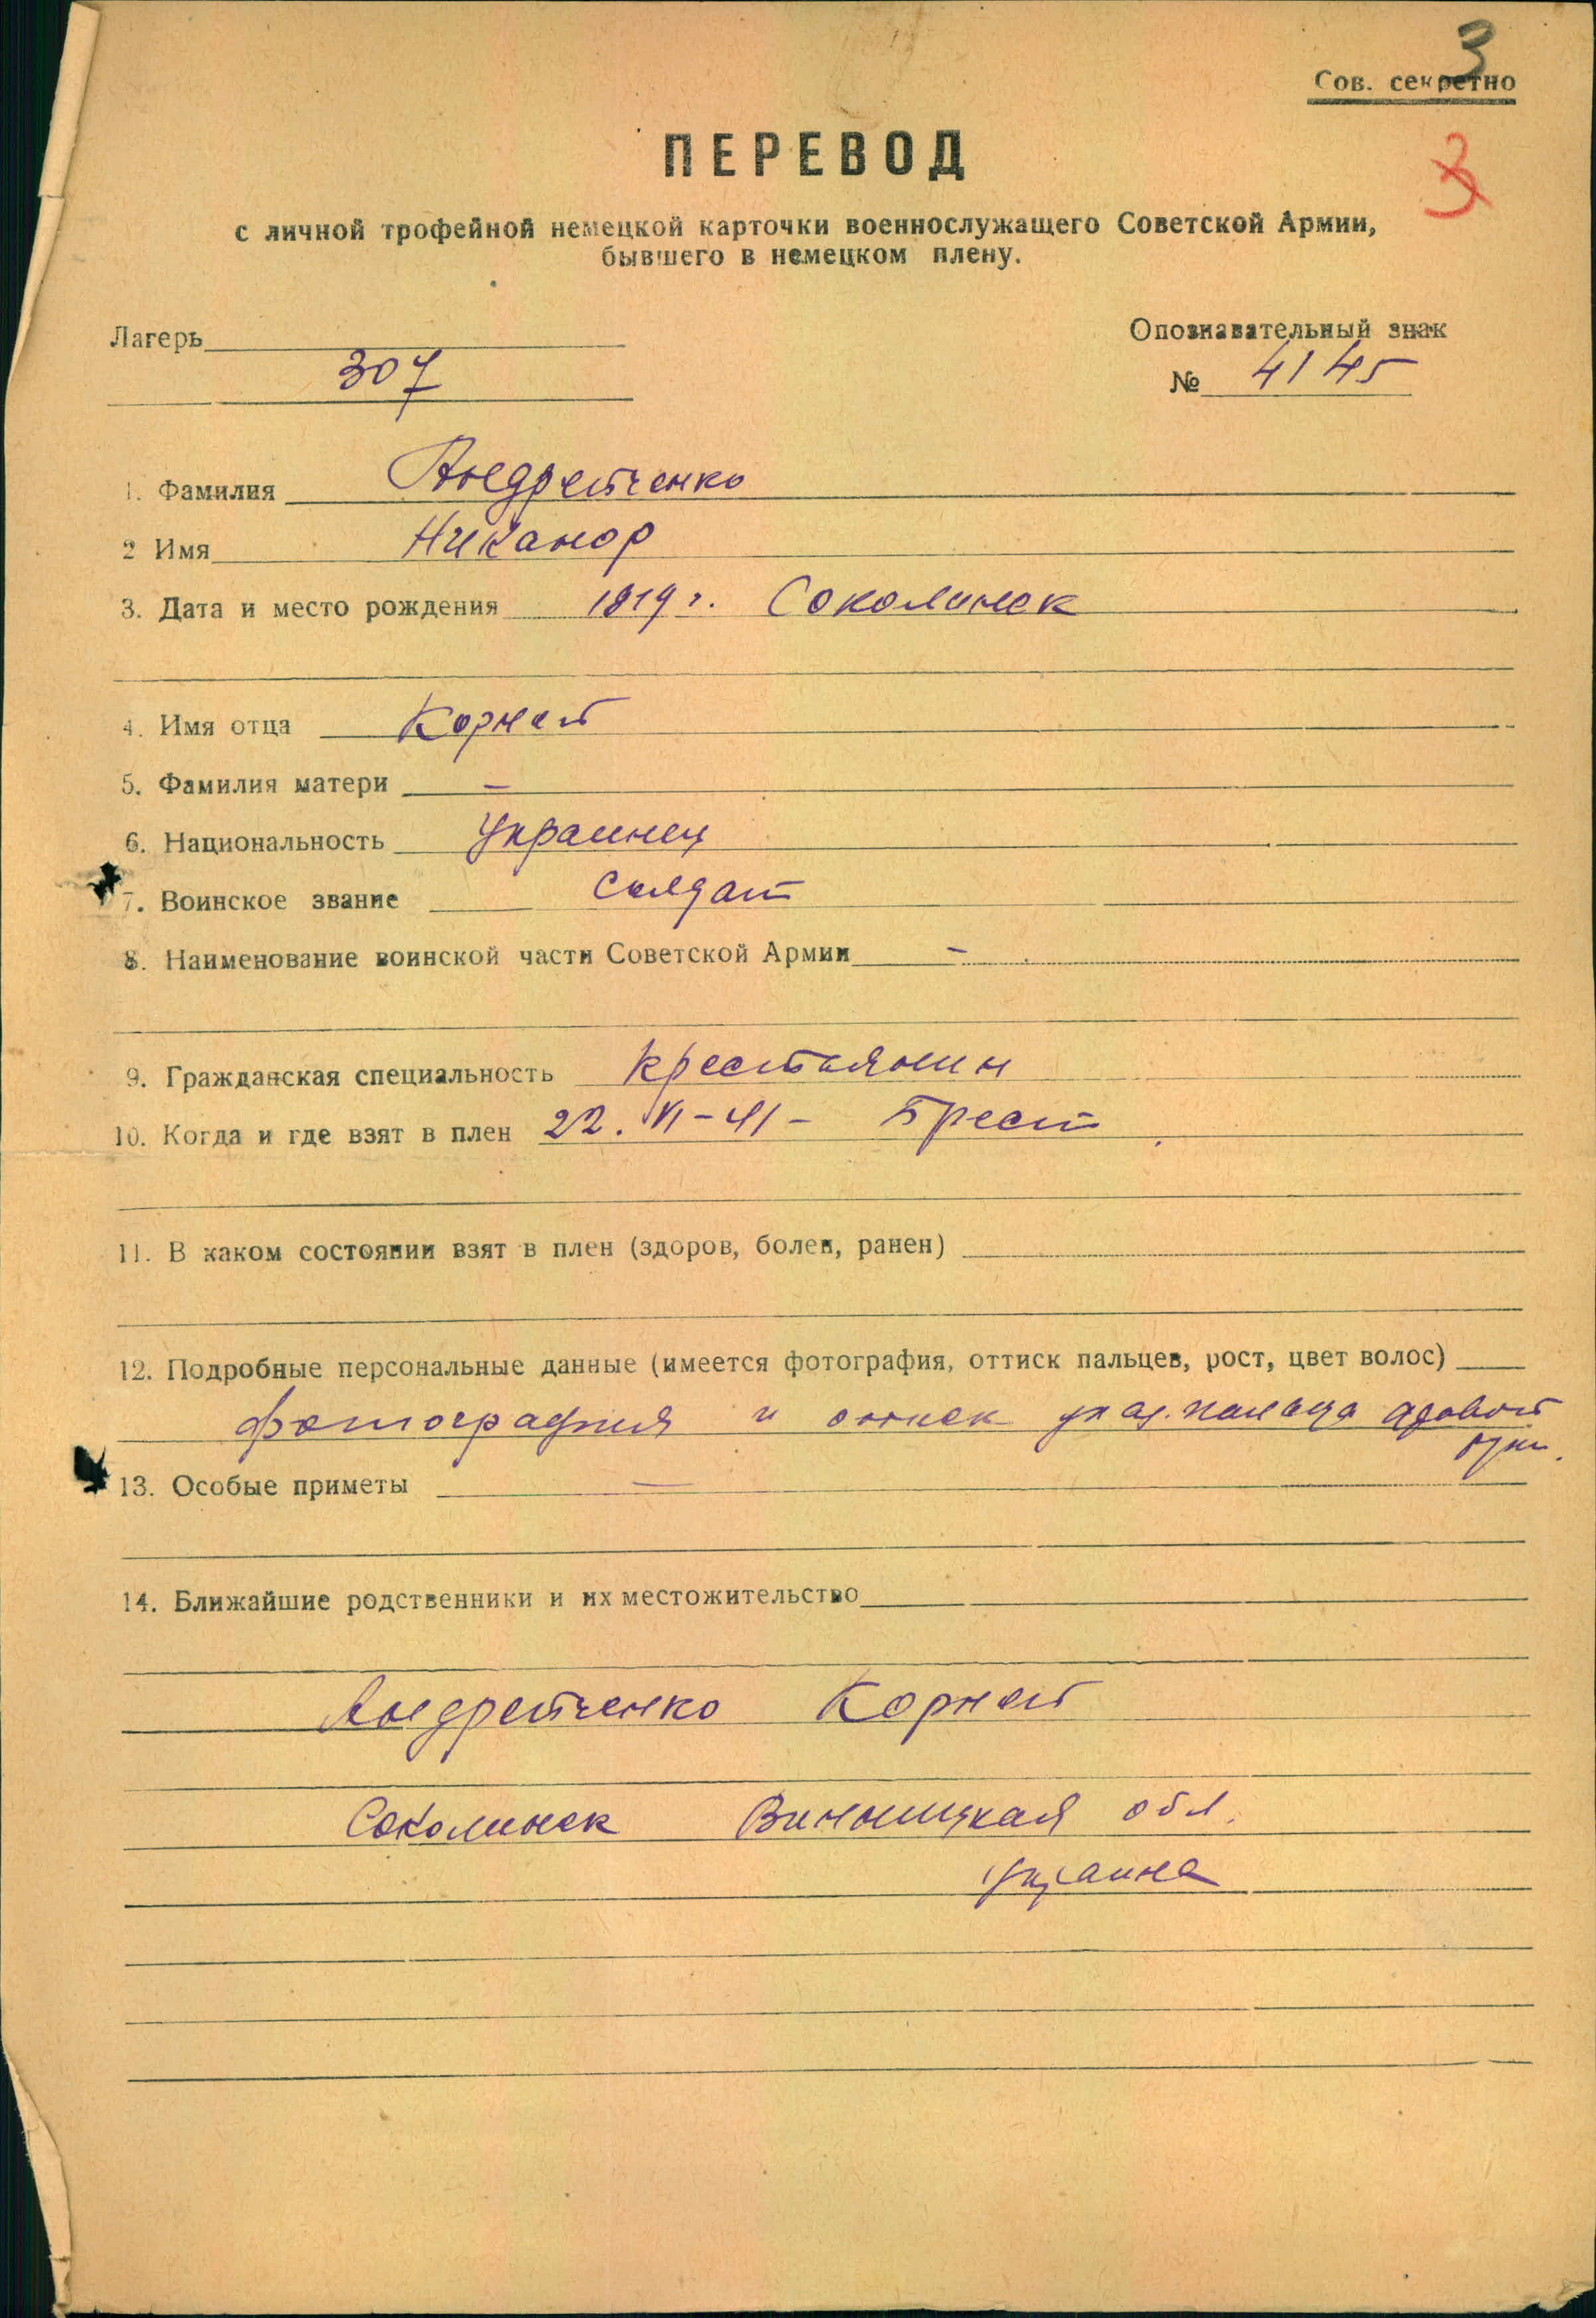 3
Сов. секретно
3
ПЕРЕВОД
с личной трофейной немецкой карточки военнослужащего Советской Армии,
бывшего в немецком плену.
Лагерь
307
Опознавательный знак
№ 4145
1. Фамилия Андрейченко
2 Имя Никанор
3. Дата и место рождения 1919 г. Соколинек
4. Имя отца Корней
5. Фамилия матери –
6. Национальность Украинец
7. Воинское звание Солдат
8. Наименование воинской части Советской Армии –
9. Гражданская специальность крестьянин
10. Когда и где взят в плен 22. VI – 41 – Брест
11. В каком состоянии взят в плен (здоров, болен, ранен)
12. Подробные персональные данные (имеется фотография, оттиск пальцев, рост, цвет волос)
фотография и оттиск указ. пальца правой
руки.
13. Особые приметы —
14. Ближайшие родственники и их местожительство
Андрейченко Корней
Соколинек Винницкая обл.
Украина